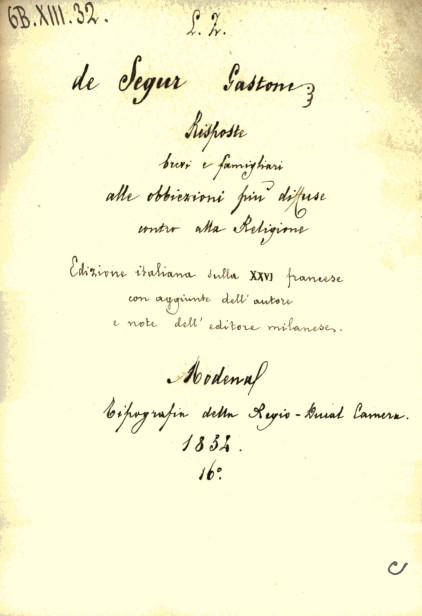 6B.XIII.32.
L. Z.
de Segur Gastone
Risposte
brevi e famigliari
alle obbiezioni più diffuse
contro alla Religione
Edizione italiana sulla XXVI francese
con aggiunte dell' autore
e note dell' editore milanese.
Modena
Tipografia della Regio-Ducal Camera.
1854.
16°.